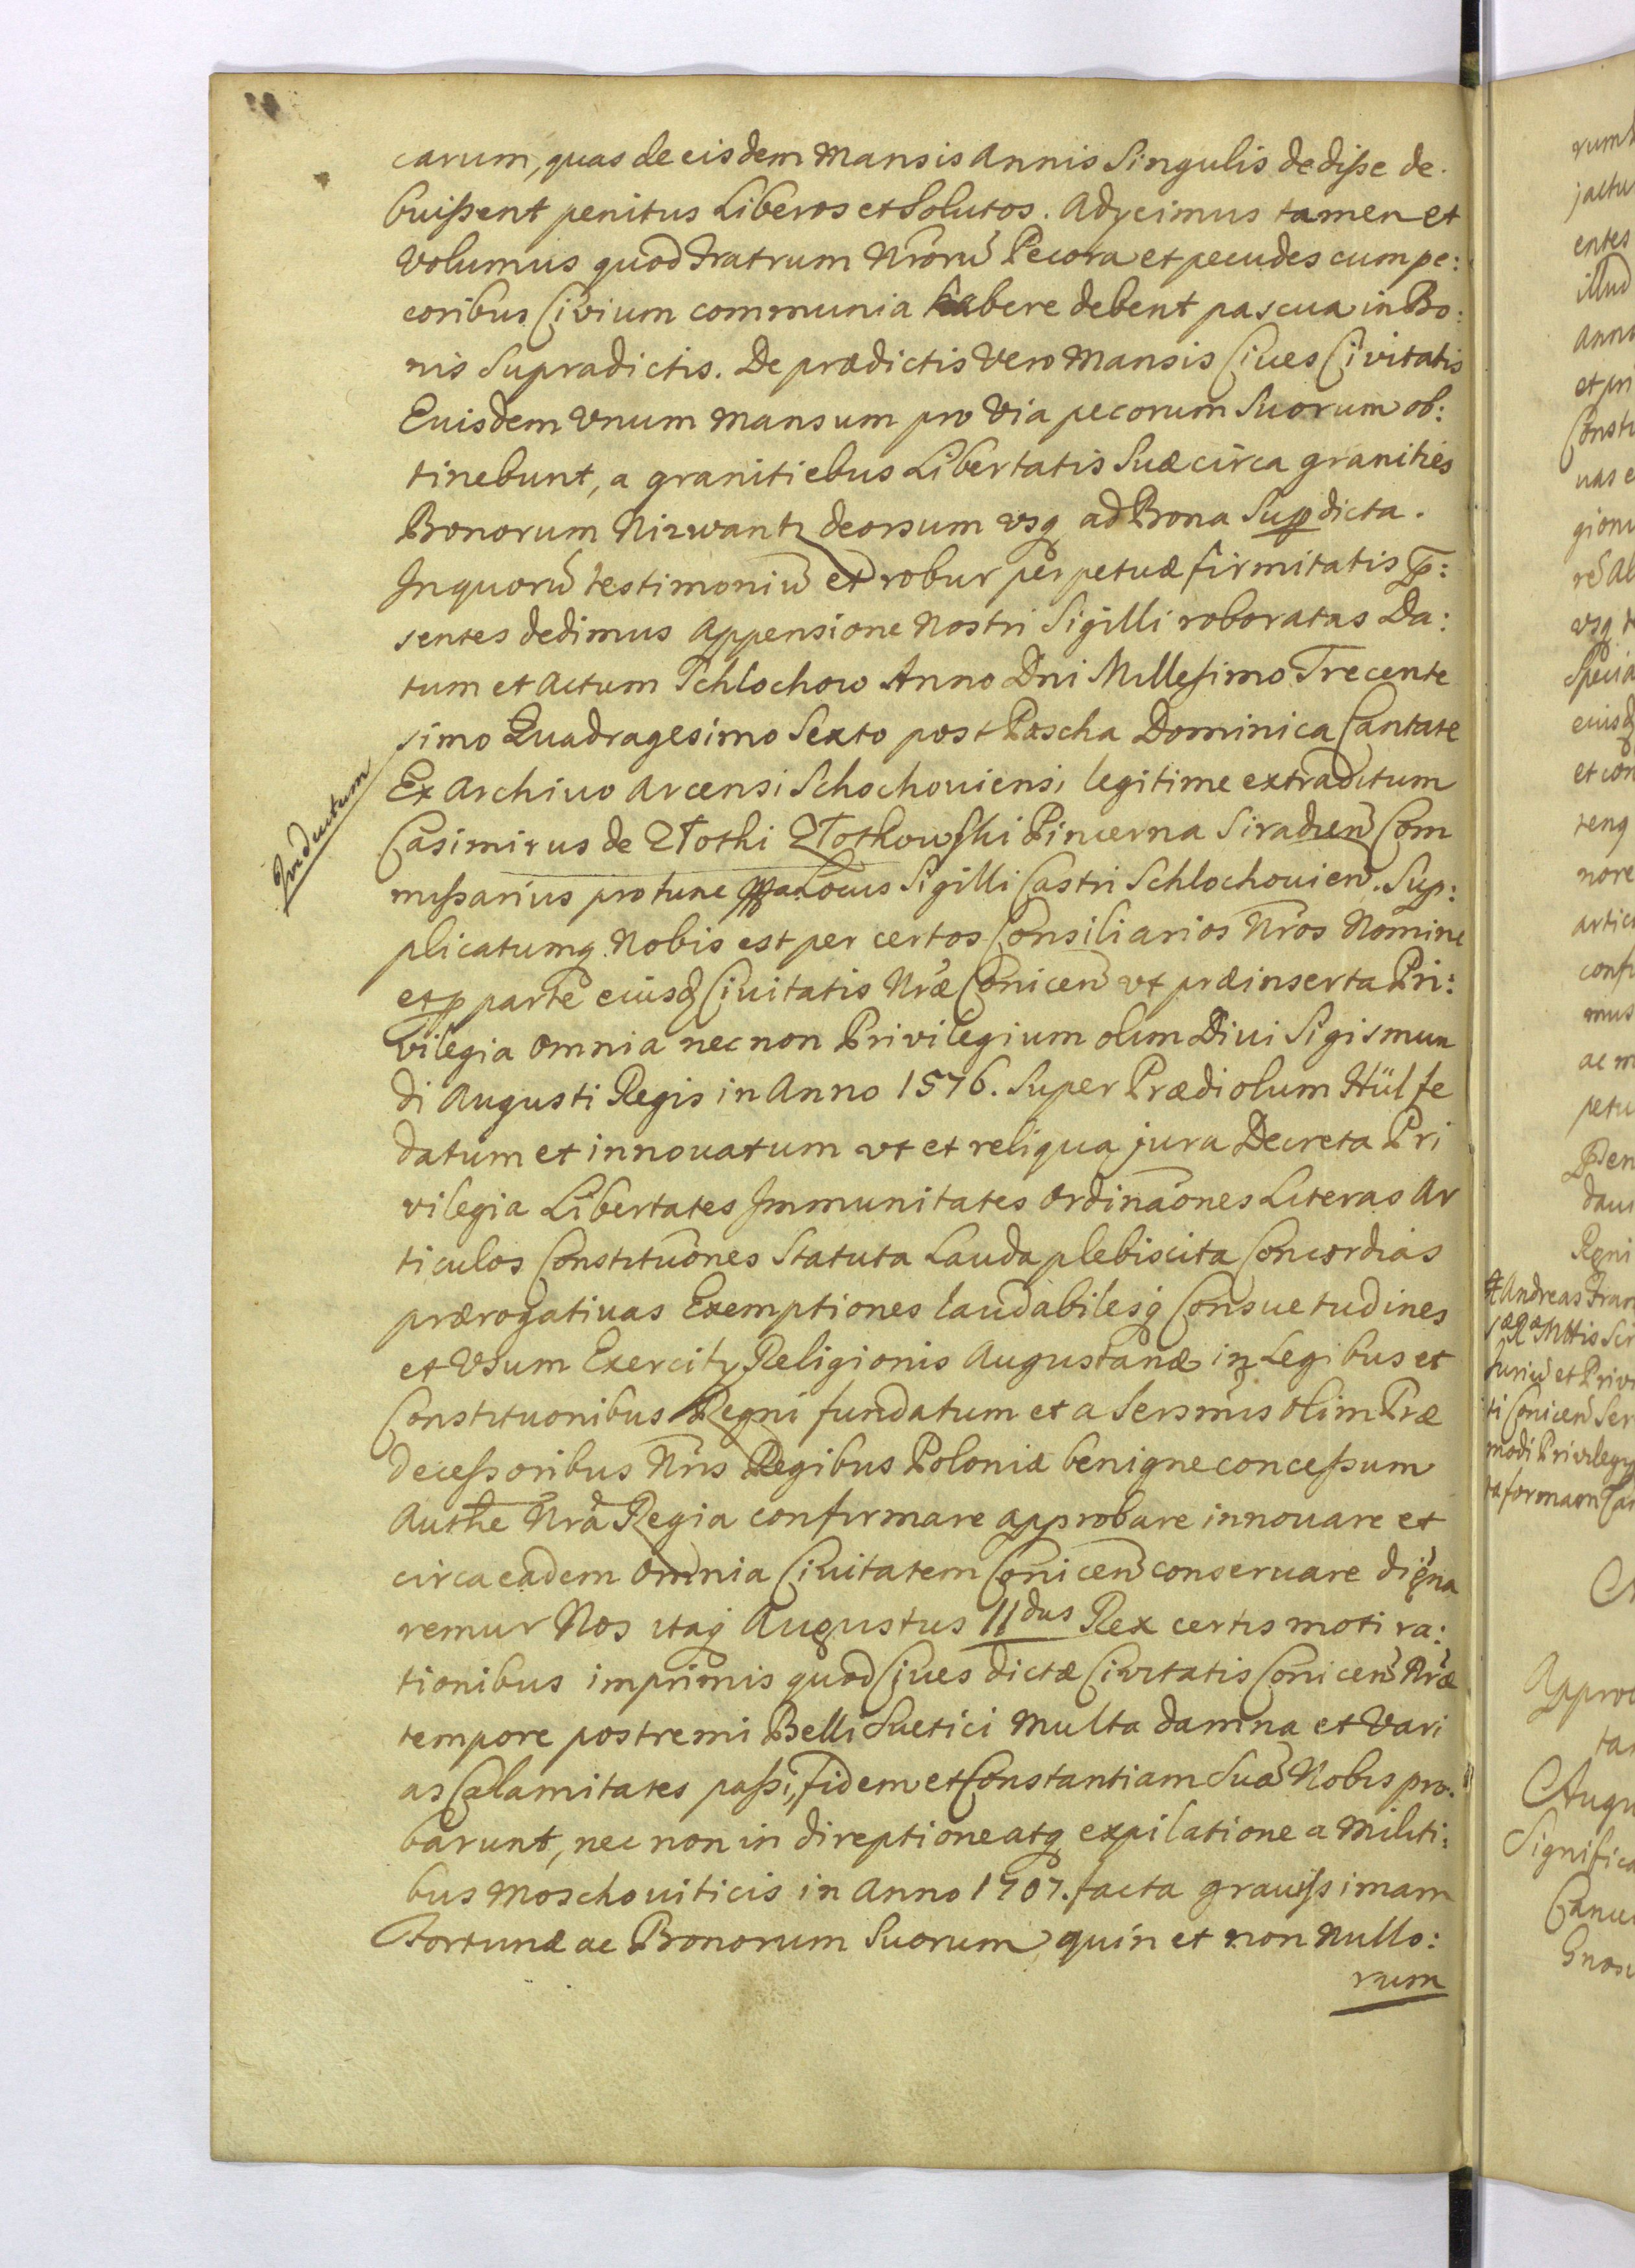 carum, quas de eisdem Mansis Annis Singulis dedisse de.
buissent penitus Liberos et Solutos. Adjicimus tamen et
Volumus quod Fratrum Nrorũ Pecora et pecudes cum pe:
coribus Civium communia habere debent pascua in Bo:
nis Supradictis. De prædictis Vero Mansis Cives Civitatis
Euisdem Vnum Mansum pro Via pecorum Suorum ob:
tinebunt, a granitiebus Libertatis Suæ circa granities
Bonorum Nizwantz deorsum vsq ad Bona Suppdicta.
In quorũ testimoniũ et robur perpetuæ firmitatis P̃:
sentes dedimus Appensione Nostri Sigilli roboratas Da:
tum et Actum Schlochow Anno Dni Millesimo Trecente
simo Quadragesimo Sexto post Pascha Dominica Cantate
Ex Archivo Arcensi Schochoviensi legitime extraditum
Casimirus de Złothi Złotkowski Pincerna Siradien̄ Com
Inductum
missarius pro tunc Locus Sigilli Castri Schlochovien̄. Sup:
plicatumq. Nobis est per certos Consiliarios Nros Nomine
et p parte eiusd Ciuitatis Nræ Conicen̄ vt præinserta Pri:
vilegia omnia nec non Privilegium olim Diui Sigismun
di Augusti Regis in Anno 1576. Super Prædiolum Hülfe
datum et innouatum vt et reliqua jura Decreta Pri
vilegia Libertates Immunitates Ordinãones Literas Ar
ticulos Constituõnes Statuta Lauda plebiscita Concordias
prærogatiuas Exemptiones laudabilesq Consuetudines
et Vsum Exercitÿ Religionis Augustanæ in Legibus et
Constituonibus Regni fundatum et a Sersmis olim Præ
decessoribus Nris Regibus Poloniæ benigne concessum
Authe Nrã Regia confirmare approbare innouare et
circa eadem omnia Ciuitatem Conicen̄ conseruare digna
remur Nos itaq Augustus IIdus Rex certis moti ra:
tionibus imprimis quod Ciues dictæ Civitatis Conicen̄ Nræ
tempore postremi Belli Suetici Multa damna et Vari
as Calamitates passi, fidem et Constantiam Suã Nobis pro.
barunt, nec non in direptione atq expilatione a Militi:
bus Moschouiticis in Anno 1707. facta grauissimam
Fortunæ ac Bonorum Suorum quin et non Nullo:
rum